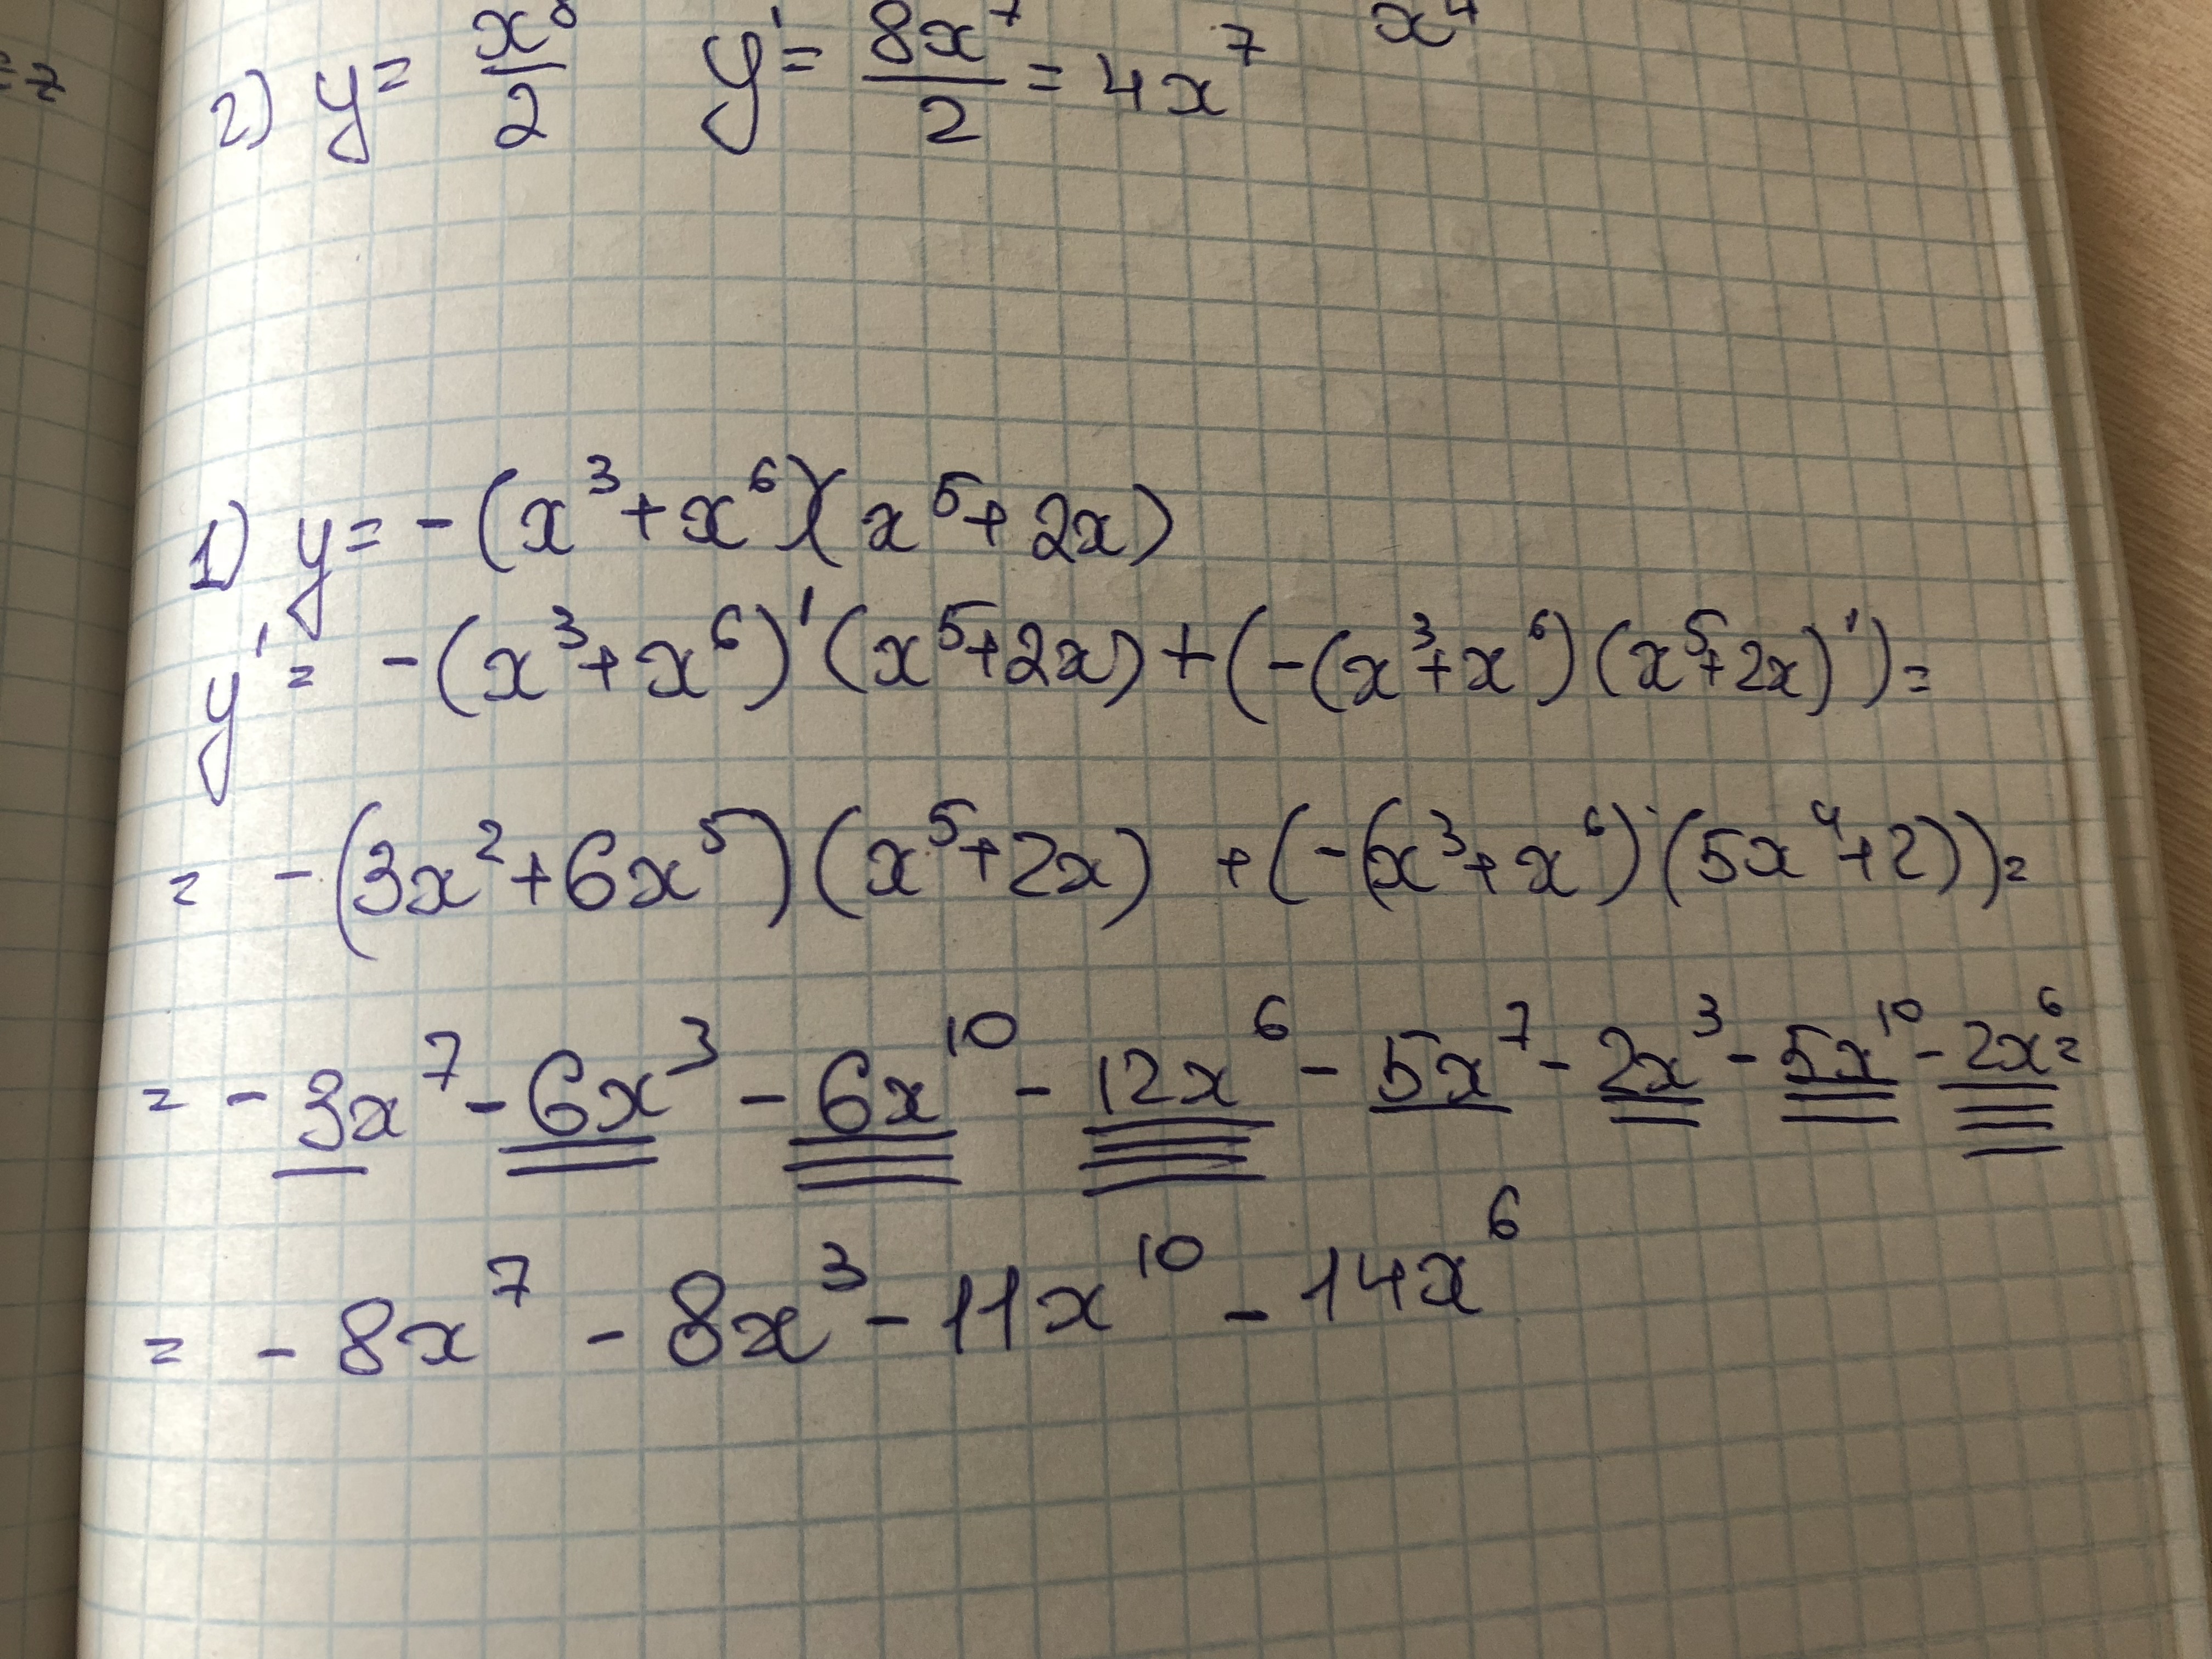 2) y = x⁸/2 y' = 8x⁷/2 = 4x⁷ x⁴
1) y = -(x³+x⁶)(x⁵+2x)
y' = -(x³+x⁶)'(x⁵+2x)+(-(x³+x⁶)(x⁵+2x)')=
= -(3x²+6x⁵)(x⁵+2x) +(-(x³+x⁶)(5x⁴+2))=
= -3x⁷-6x³-6x¹⁰-12x⁶-5x⁷-2x³-5x¹⁰-2x⁶=
= -8x⁷-8x³-11x¹⁰-14x⁶